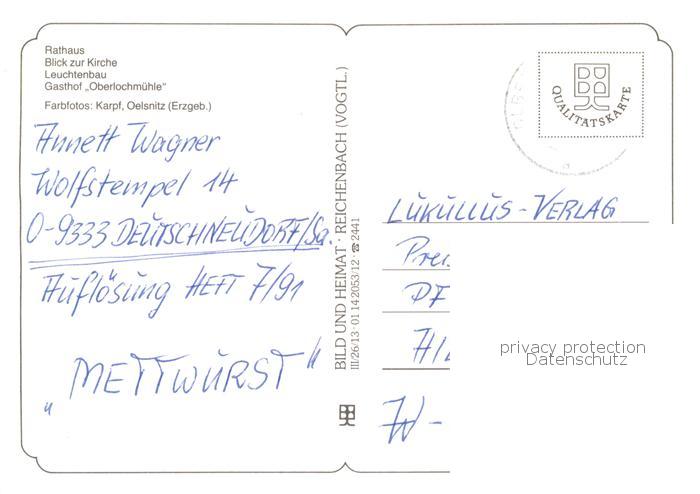 Rathaus
Blick zur Kirche
Leuchtenbau
Gasthof „Oberlochmühle“
Farbfotos: Karpf, Oelsnitz (Erzgeb.)
Annett Wagner
Wolfstempel 14
O-9333 DEUTSCHNEUDORF/Sa.
Auflösung HEFT 7/91
„METTWURST“
BILD UND HEIMAT · REICHENBACH (VOGTL.)
III/26/13 · 01 14 2053/12 · ☎ 2441
QUALITÄTSKARTE
LUKULLUS-VERLAG
W-
privacy protection
Datenschutz